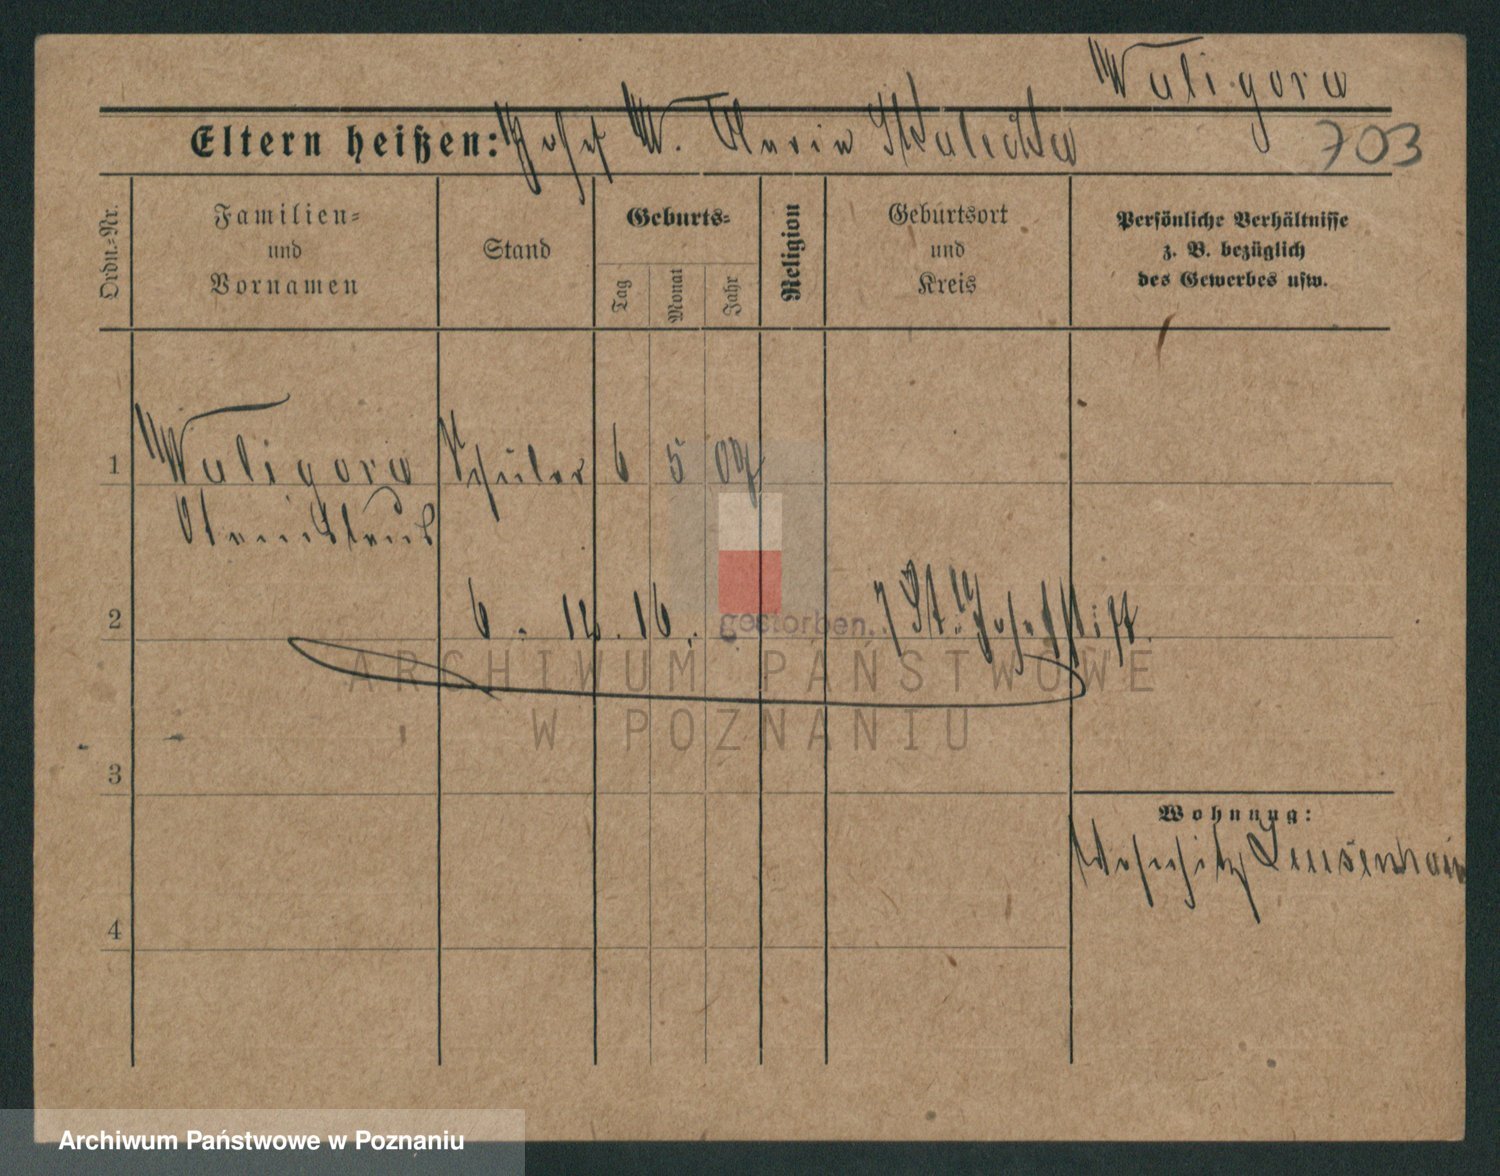 Waligora
Eltern heißen: Josef W. Maria Skalecka
703
Ordn.-Nr.
Familien-
und
Vornamen
Stand
Geburts-
Tag
Monat
Jahr
Religion
Geburtsort
und
Kreis
Persönliche Verhältnisse
z. B. bezüglich
des Gewerbes usw.
1 Waligora Schüler 6 5 09
Stanislaus
2 6. 12. 16. gestorben. St. Josefstift.
ARCHIWUM PAŃSTWOWE
W POZNANIU
3
Wohnung:
Luisenhain
4
Archiwum Państwowe w Poznaniu